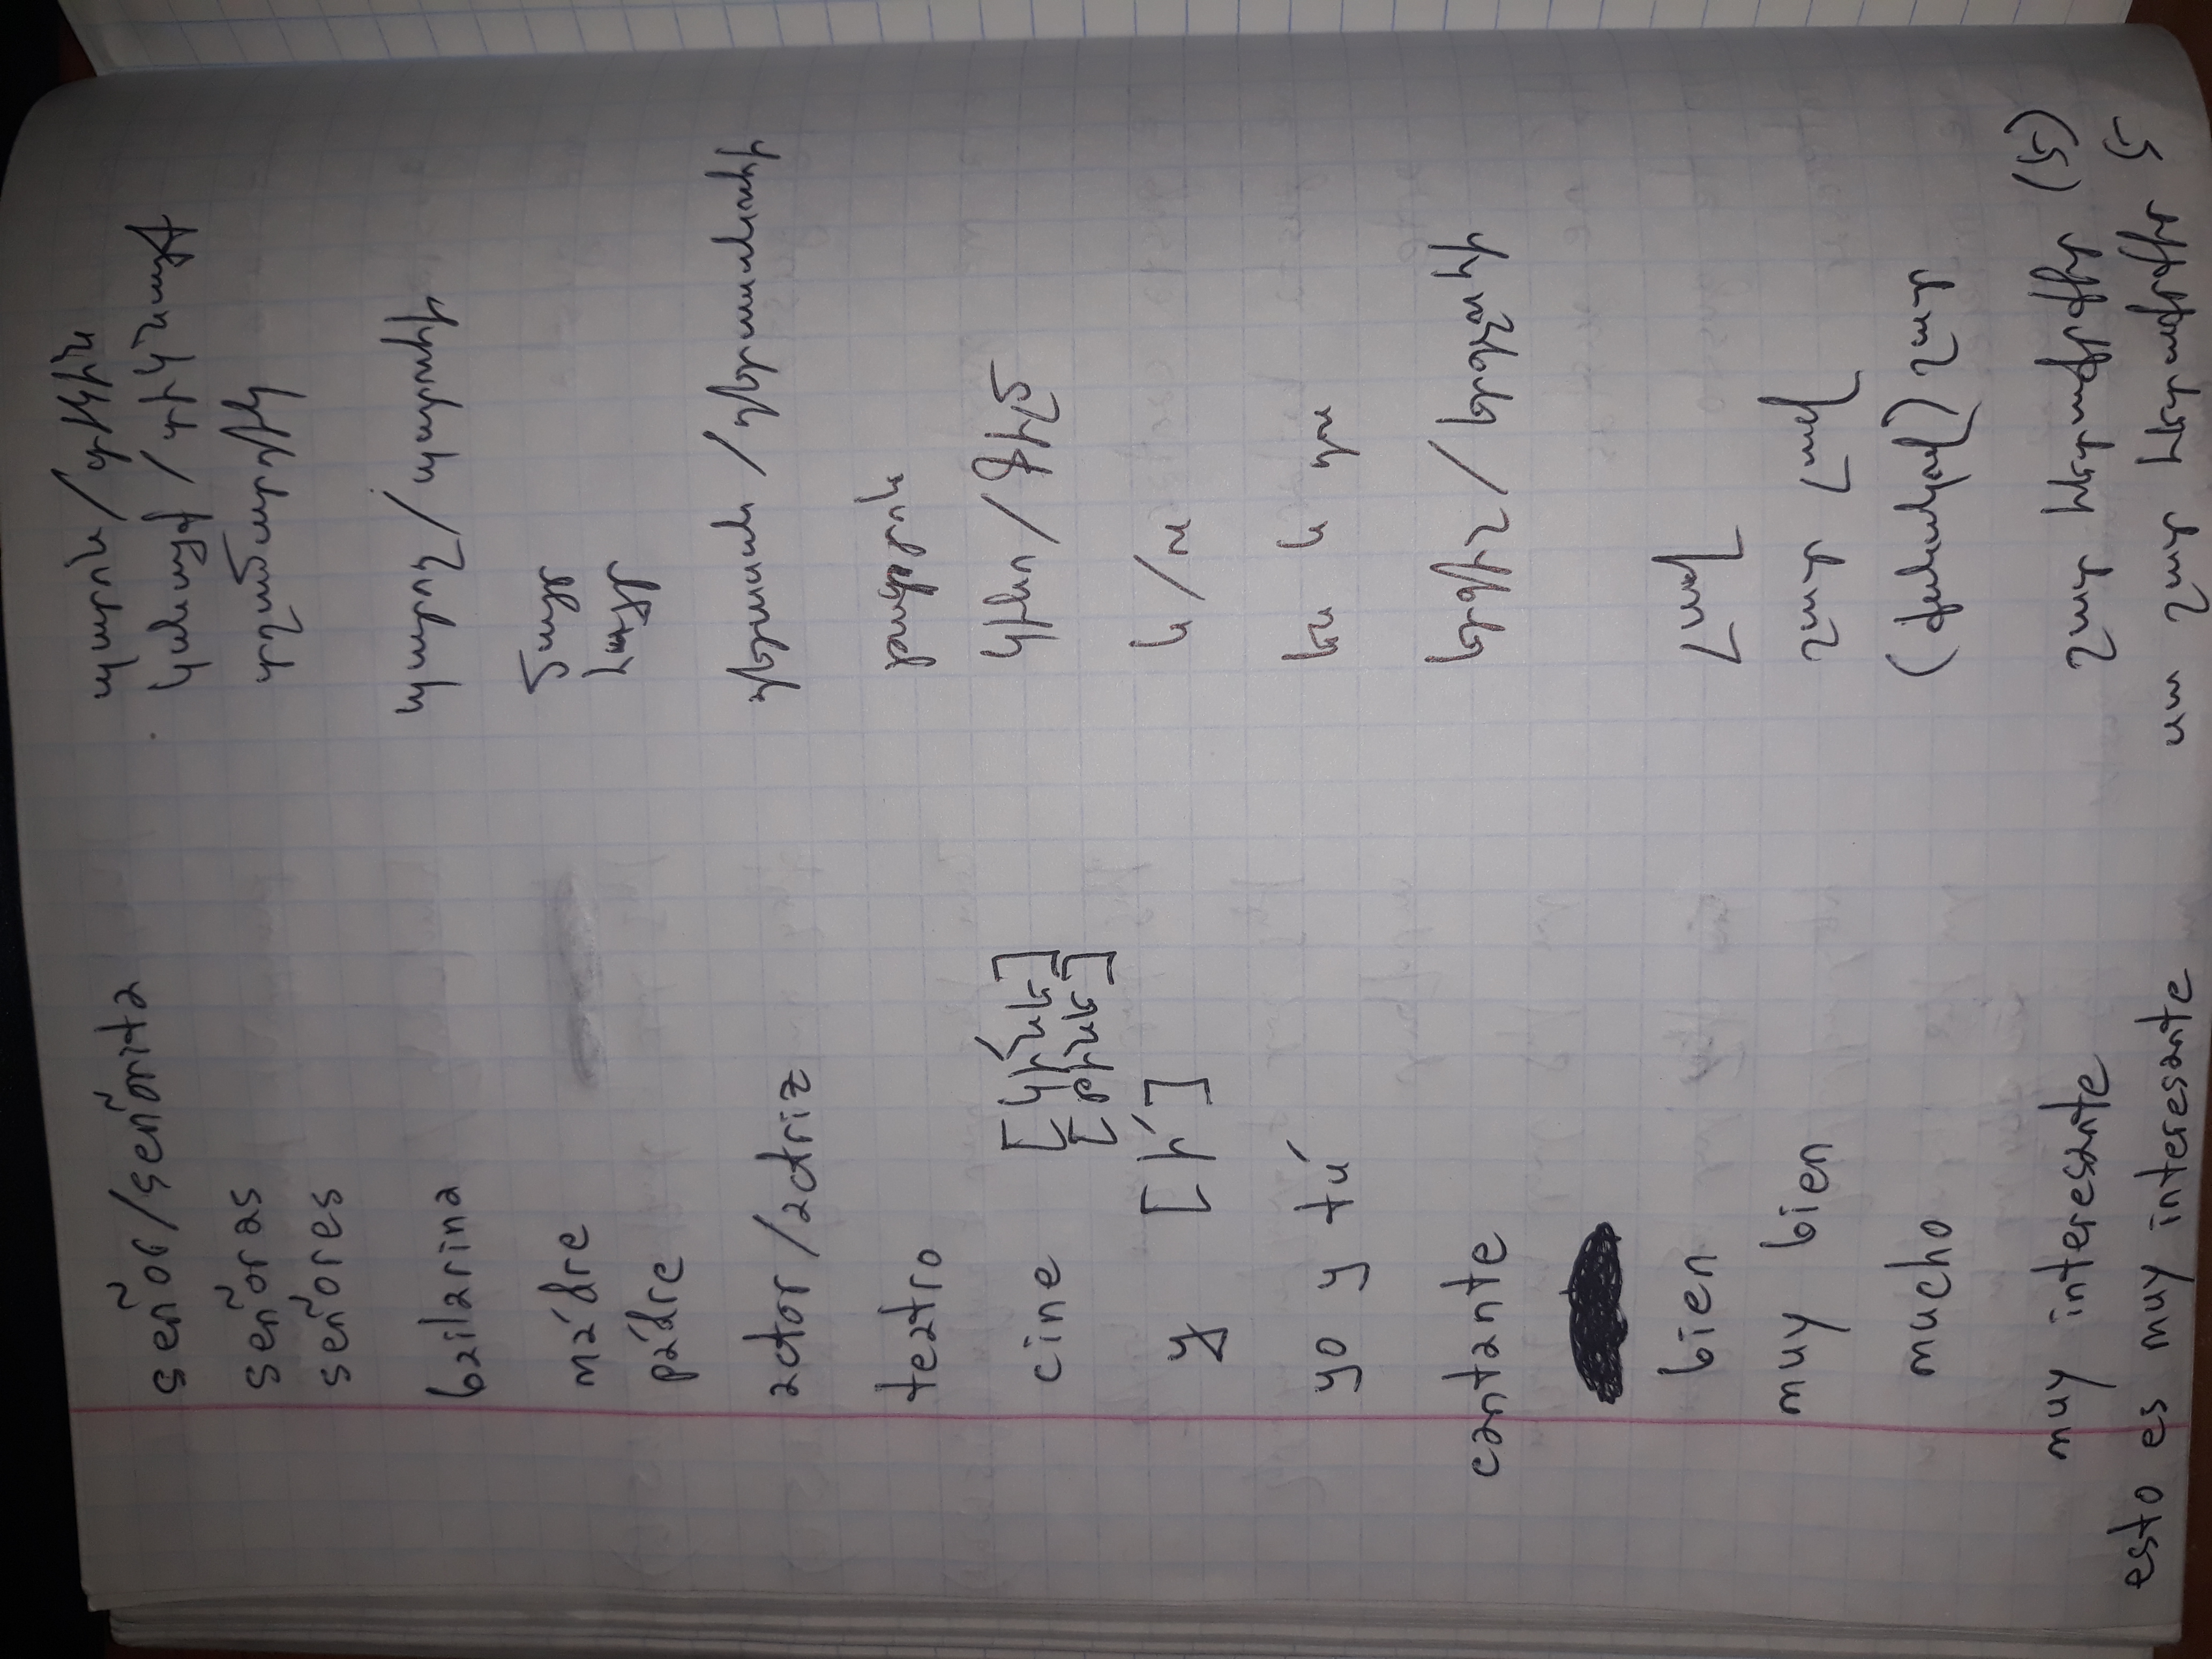 señor/señorita պարոն/տիկին
señoras կանայք/տիկնայք
señores տղամարդիկ
bailarina պարող/պարուհի
mádre մայր
pádre հայր
actor/actriz դերասան/դերասանուհի
teatro թատրոն
cine [կի՛նե] կինո/ֆիլմ
[թինե]
y [ի՛] և/ու
yo y tú ես և դու
cantante երգիչ/երգչուհի
bien լավ
muy bien շատ լավ
mucho (քանակով) շատ
muy interesante շատ հետաքրքիր (է)
esto es muy interesante սա շատ հետաքրքիր է